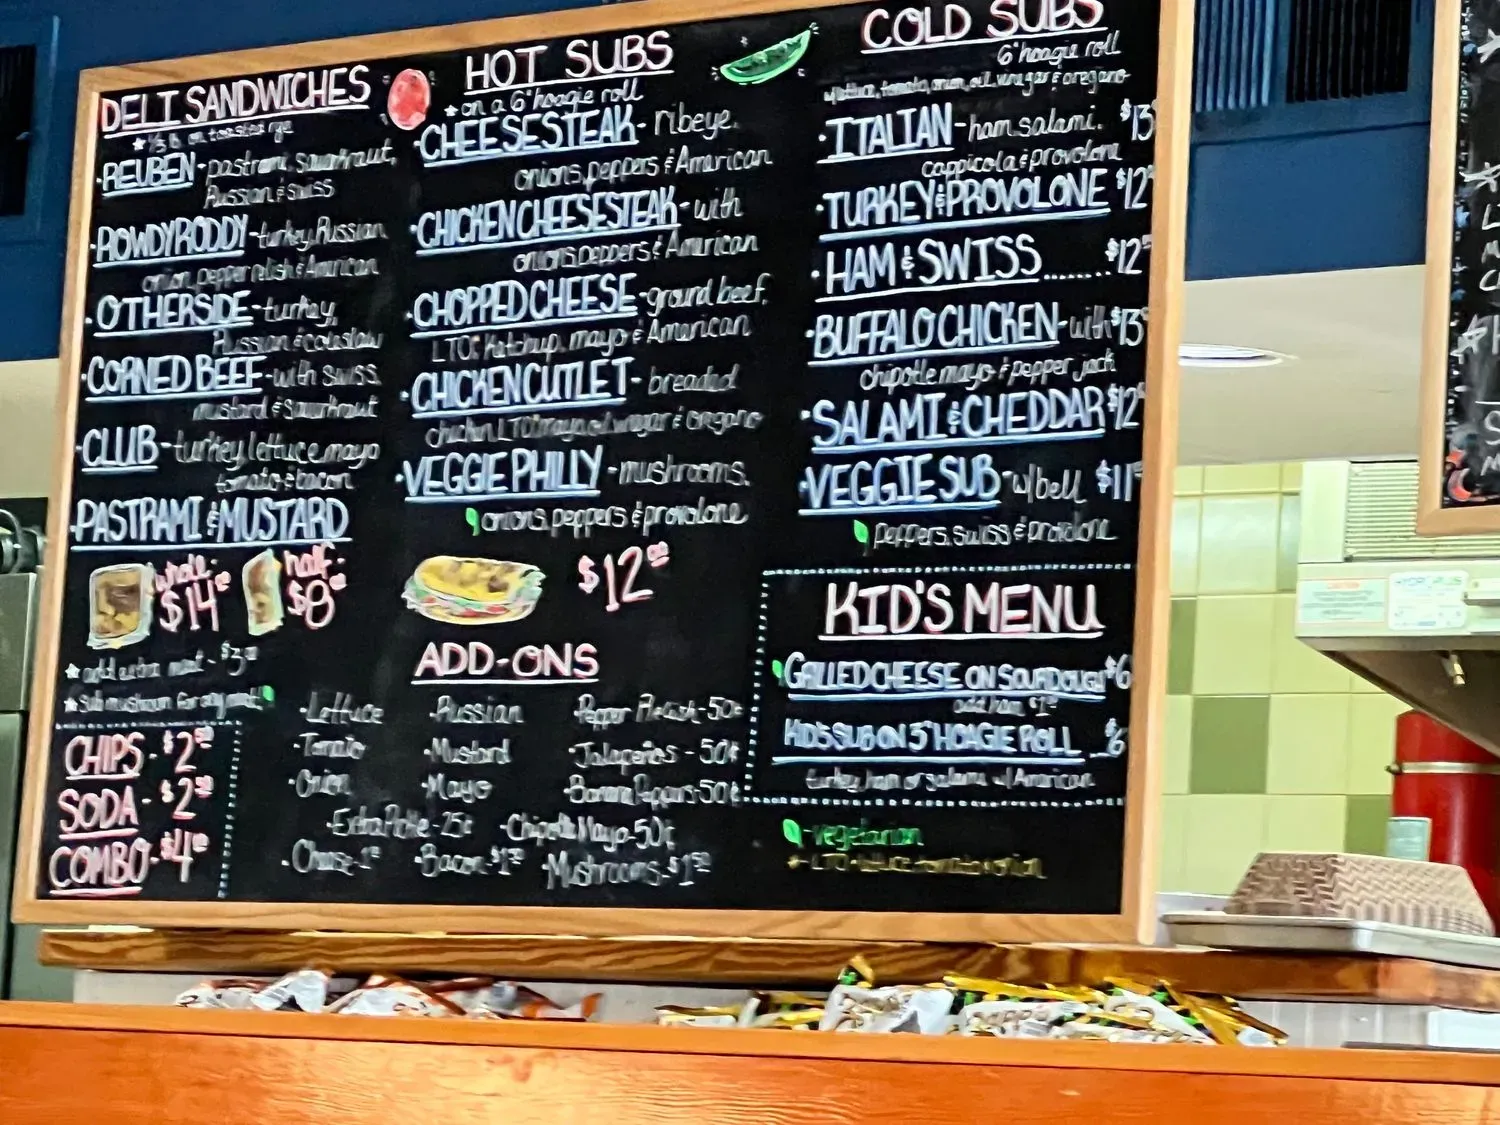 DELI SANDWICHES
★ 1/3 lb. on toasted rye
·REUBEN - pastrami, sauerkraut,
Russian & swiss
·ROWDY RODDY - turkey, Russian
onion, pepper relish & American
·OTHERSIDE - turkey,
Russian & coleslaw
·CORNED BEEF - with swiss,
mustard & sauerkraut
·CLUB - turkey, lettuce, mayo
tomato & bacon
·PASTRAMI & MUSTARD
whole: $14 half: $8
★ add extra meat - $3
★ Sub mushroom for any meat
CHIPS - $2.50
SODA - $2.50
COMBO - $4
HOT SUBS
★ on a 6" hoagie roll
·CHEESESTEAK - ribeye,
onions, peppers & American
·CHICKEN CHEESESTEAK - with
onions, peppers & American
·CHOPPED CHEESE - ground beef,
LTO, ketchup, mayo & American
·CHICKEN CUTLET - breaded
chicken, LTO, mayo, oil, vinegar & oregano
·VEGGIE PHILLY - mushrooms,
onions, peppers & provolone
$12.00
ADD-ONS
·Lettuce ·Russian ·Pepper Relish - 50¢
·Tomato ·Mustard ·Jalapeños - 50¢
·Onion ·Mayo ·Banana Peppers - 50¢
·Extra Pickle - 25¢ ·Chipotle Mayo - 50¢
·Cheese - 1 ·Bacon - $1 ·Mushrooms - $1.50
COLD SUBS
6" hoagie roll
w/lettuce, tomato, onion, oil, vinegar & oregano
·ITALIAN - ham, salami, $13
cappicola & provolone
·TURKEY & PROVOLONE $12
·HAM & SWISS........$12
·BUFFALO CHICKEN - with $13
chipotle mayo & pepper jack
·SALAMI & CHEDDAR $12
·VEGGIE SUB - w/bell $11
peppers, swiss & provolone
KID'S MENU
GRILLED CHEESE ON SOURDOUGH $6
add ham $1
KID'S SUB ON 3" HOAGIE ROLL ...$6
turkey, ham or salami w/American
- vegetarian
★ - LTO = lettuce, tomato & onion